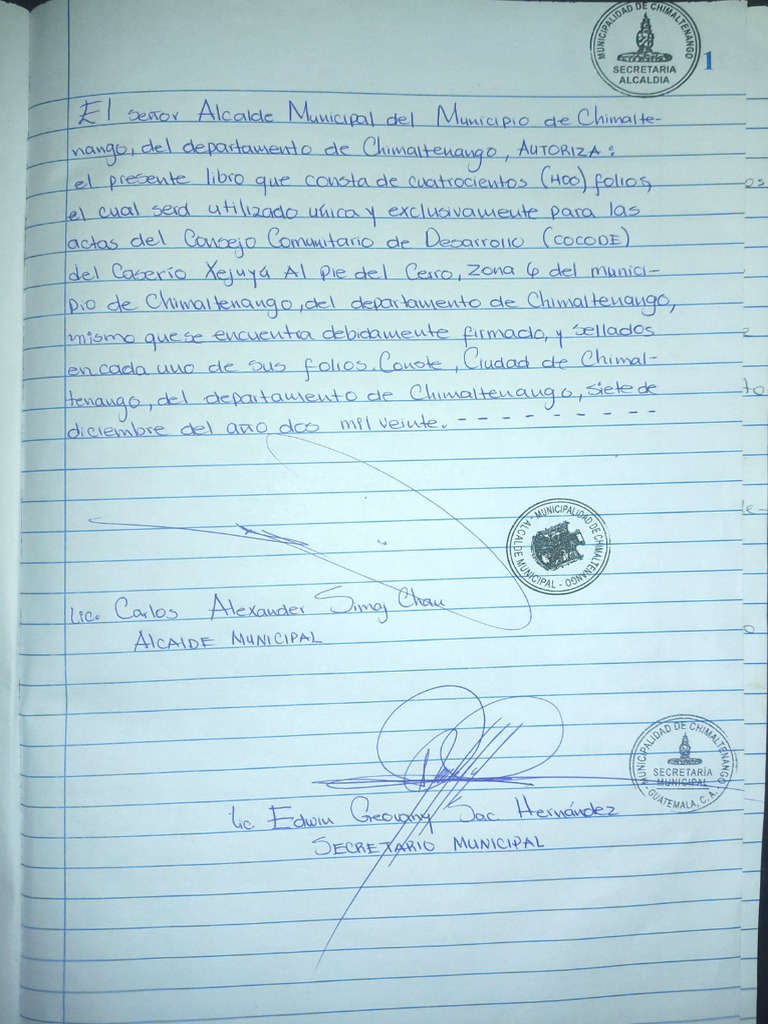 MUNICIPALIDAD DE CHIMALTENANGO
SECRETARIA
ALCALDIA
1
El señor Alcalde Municipal del Municipio de Chimalte-
nango, del departamento de Chimaltenango, AUTORIZA:
el presente libro que consta de cuatrocientos (400) folios,
el cual será utilizado única y exclusivamente para las
actas del Consejo Comunitario de Desarrollo (COCODE)
del Caserío Xejuyú Al Pie del Cerro, zona 6 del munici-
pio de Chimaltenango, del departamento de Chimaltenango,
mismo que se encuentra debidamente firmado, y sellados
en cada uno de sus folios. Conste, Ciudad de Chimal-
tenango, del departamento de Chimaltenango, siete de
diciembre del año dos mil veinte. - - - - - - - - -
MUNICIPALIDAD DE CHIMALTENANGO
ALCALDE MUNICIPAL
Lic. Carlos Alexander Simaj Chan
ALCALDE MUNICIPAL
MUNICIPALIDAD DE CHIMALTENANGO
SECRETARÍA
MUNICIPAL
GUATEMALA, C. A.
Lic. Edwin Geovany Sac Hernández
SECRETARIO MUNICIPAL